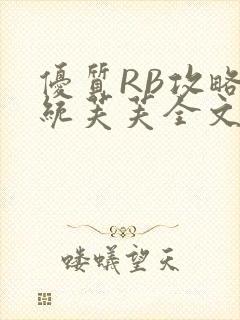 優質RB攻略
統芙芙全文
喽蟻望天